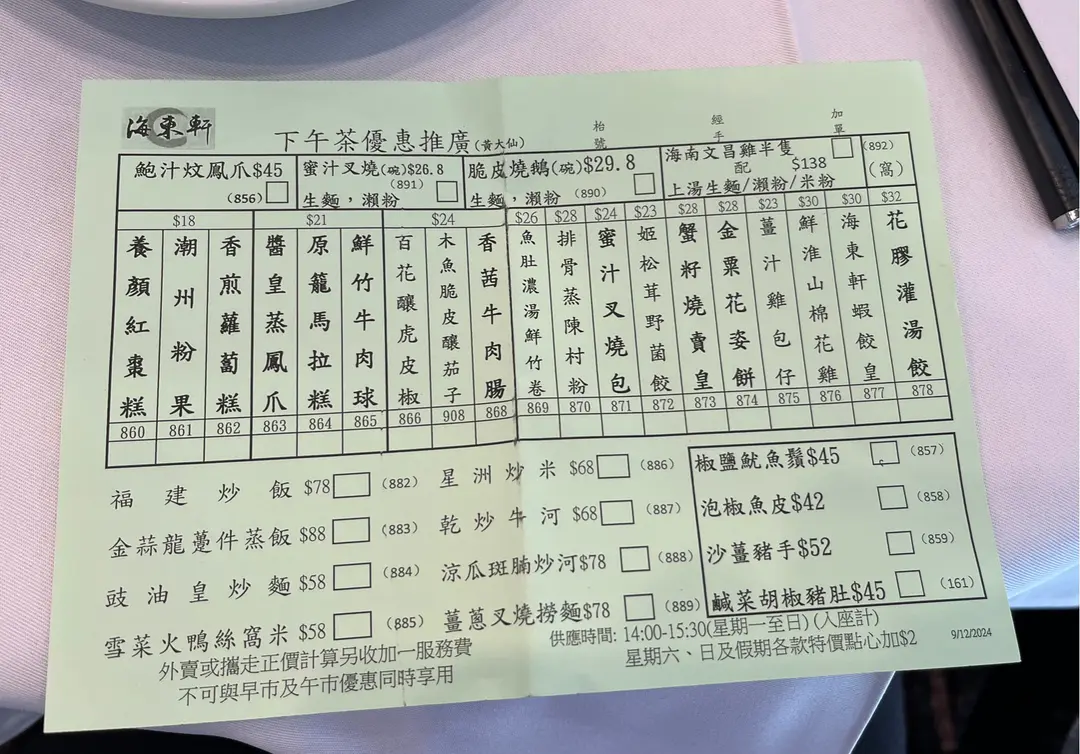 海東軒
下午茶優惠推廣(黃大仙)
枱號
經手
加單
鮑汁炆鳳爪$45
(856)
蜜汁叉燒(碗)$26.8
(891)
生麵，瀨粉
脆皮燒鵝(碗)$29.8
生麵，瀨粉 (890)
海南文昌雞半隻
配 $138
上湯生麵/瀨粉/米粉
(892)
(窩)
$18
養顏紅棗糕
860
潮州粉果
861
香煎蘿蔔糕
862
$21
醬皇蒸鳳爪
863
原籠馬拉糕
864
鮮竹牛肉球
865
$24
百花釀虎皮椒
866
木魚脆皮釀茄子
908
香茜牛肉腸
868
$26
魚肚濃湯鮮竹卷
869
$28
排骨蒸陳村粉
870
$24
蜜汁叉燒包
871
$23
姬松茸野菌餃
872
$28
蟹籽燒賣皇
873
$28
金粟花姿餅
874
$23
薑汁雞包仔
875
$30
鮮淮山棉花雞
876
$30
海東軒蝦餃皇
877
$32
花膠灌湯餃
878
福建炒飯 $78 (882)
金蒜龍躉件蒸飯 $88 (883)
豉油皇炒麵 $58 (884)
雪菜火鴨絲窩米 $58 (885)
星洲炒米 $68 (886)
乾炒牛河 $68 (887)
涼瓜斑腩炒河$78 (888)
薑蔥叉燒撈麵$78 (889)
椒鹽魷魚鬚$45 (857)
泡椒魚皮$42 (858)
沙薑豬手$52 (859)
鹹菜胡椒豬肚$45 (161)
外賣或攜走正價計算另收加一服務費
不可與早市及午市優惠同時享用
供應時間: 14:00-15:30(星期一至日) (入座計)
星期六、日及假期各款特價點心加$2
9/12/2024